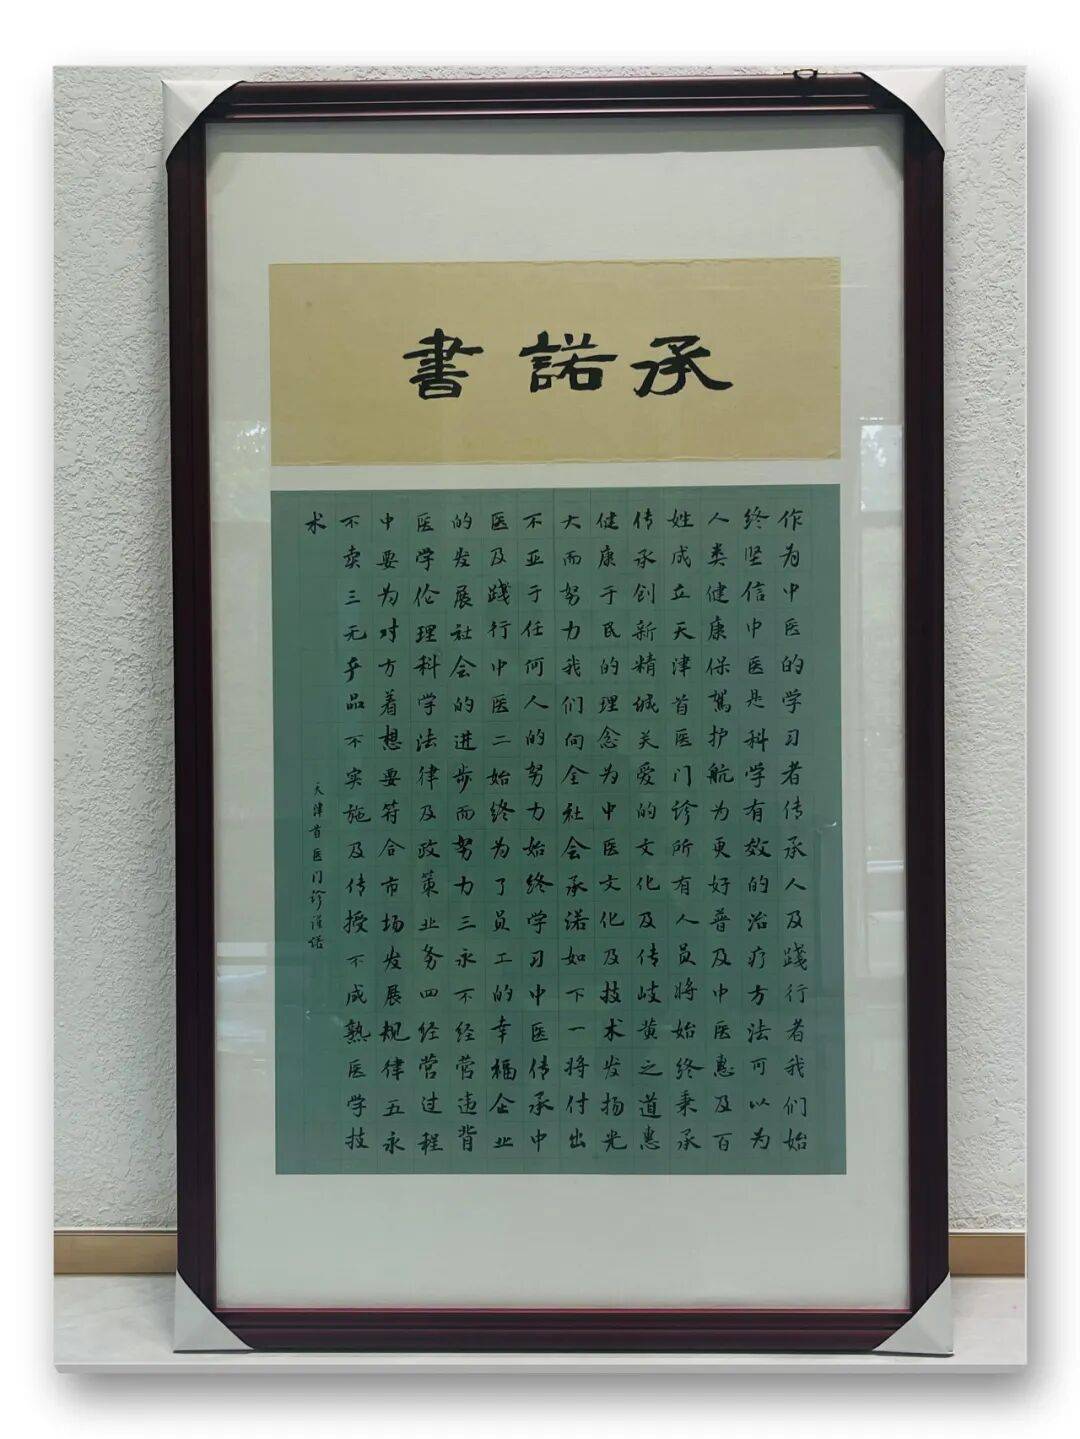 承諾書
作为中医的学习者传承人及践行者我们始
终坚信中医是科学有效的治疗方法可以为
人类健康保驾护航为更好普及中医惠及百
姓成立天津首医门诊所有人员将始终秉承
传承创新精诚关爱的文化及传岐黄之道惠
健康于民的理念为中医文化及技术发扬光
大而努力我们向全社会承诺如下一将付出
不亚于任何人的努力始终学习中医传承中
医及践行中医二始终为了员工的幸福企业
的发展社会的进步而努力三永不经营违背
医学伦理科学法律及政策业务四经营过程
中要为对方着想要符合市场发展规律五永
不卖三无产品不实施及传授不成熟医学技
术
天津首医门诊谨诺